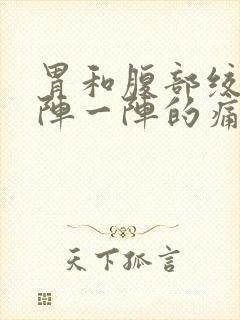 胃和腹部绞
陣一陣的痛
天下孤言